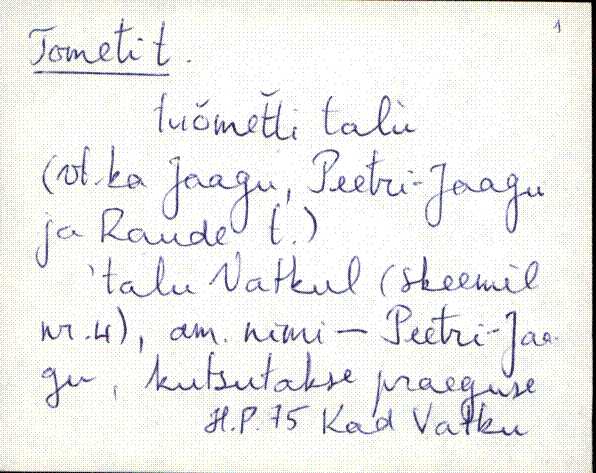 1
Tometi t.
tuŏmet̆ti talù
(vt.ka Jaagu, Peetri-Jaagu
ja Raude t.)
'talu Vatkul (skeemil
nr.4), am. nimi — Peetri-Jaa-
gu, kutsutakse praeguse
H.P.75 Kad Vatku